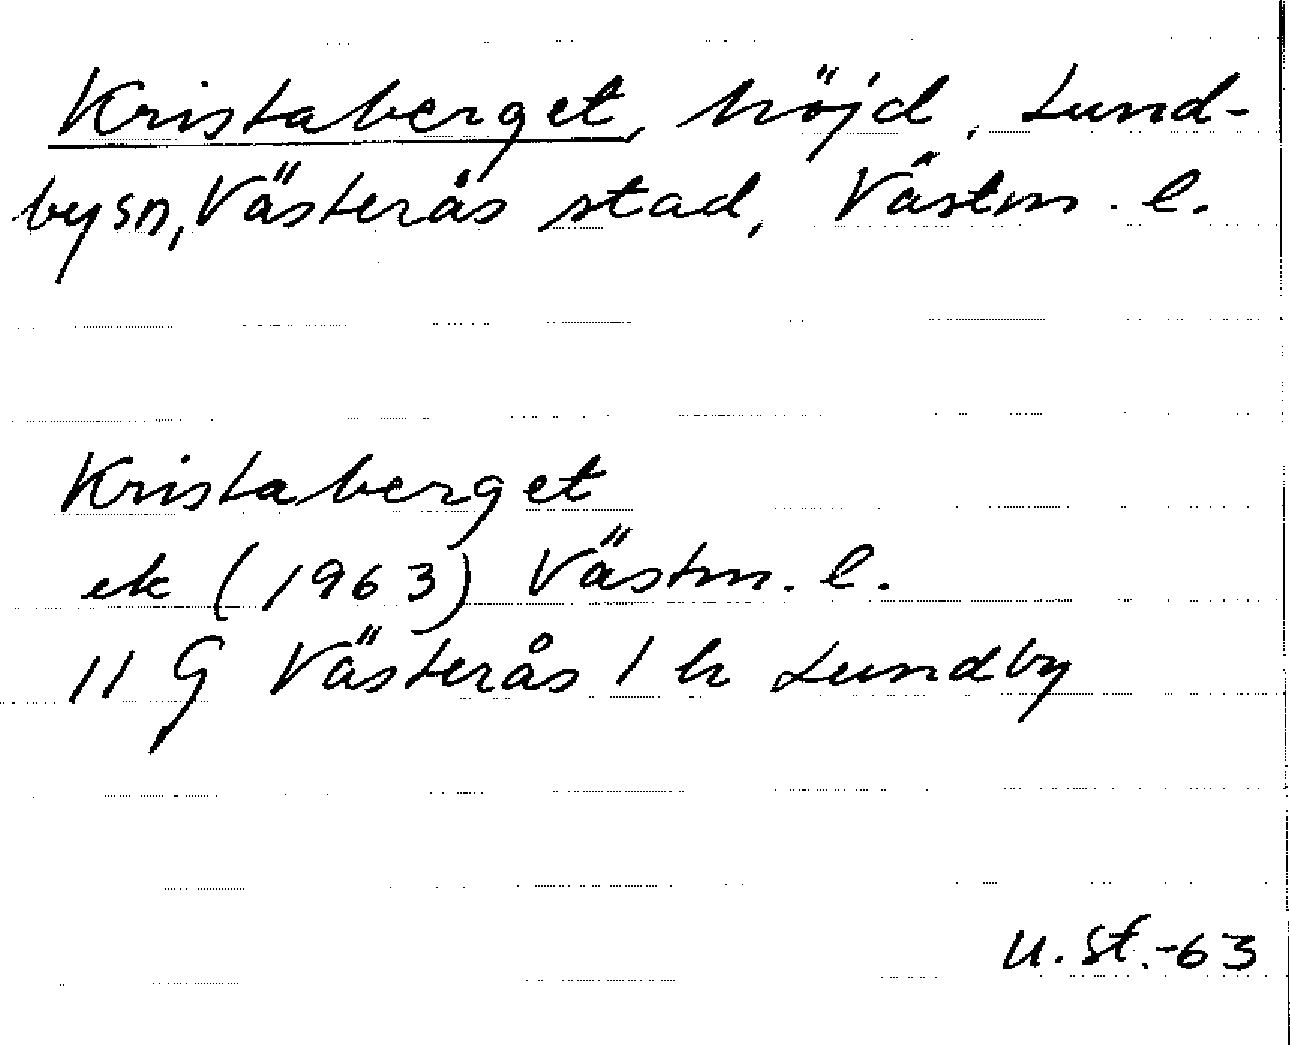 Kristaberget, höjd, Lund-
by sn, Västerås stad, Västm. l.
Kristaberget
ek (1963) Västm. l.
11 G Västerås 1 h Lundby
U. St. -63